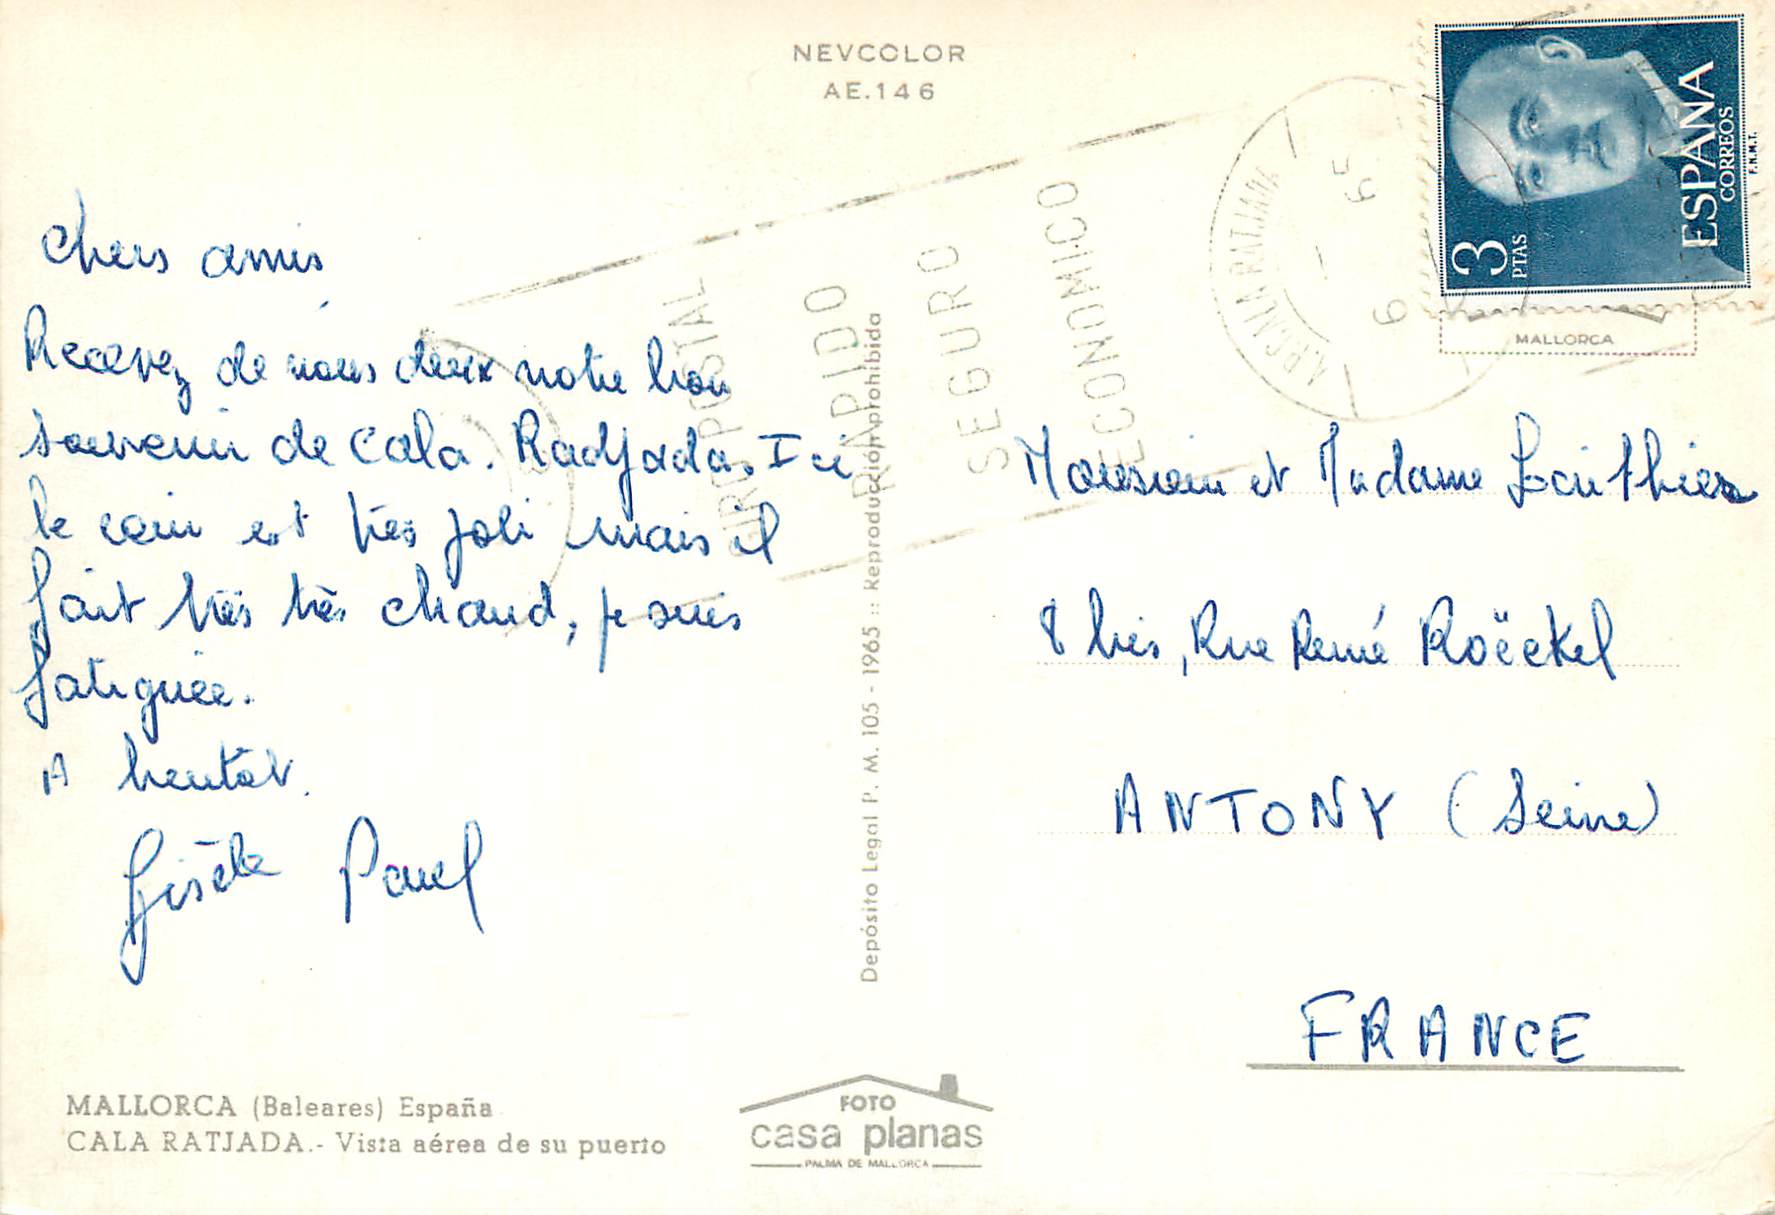 NEVCOLOR
AE.146
ESPAÑA
CORREOS
3
PTAS
F.N.M.T.
MALLORCA
CALA RATJADA
6
65
GIRO POSTAL
RAPIDO
SEGURO
ECONOMICO
Chers amis
Recevez de nous deux notre bon
souvenir de Cala. Radjada. Ici
le coin est très joli mais il
fait très très chaud, je suis
fatiguée.
A bentôt.
Gisèle Paul
Monsieur et Madame
8 bis, Rue René Roëckel
ANTONY (Seine)
FRANCE
Depósito Legal P. M. 105 - 1965 :: Reproducción prohibida
MALLORCA (Baleares) España
CALA RATJADA.- Vista aérea de su puerto
FOTO
casa planas
PALMA DE MALLORCA